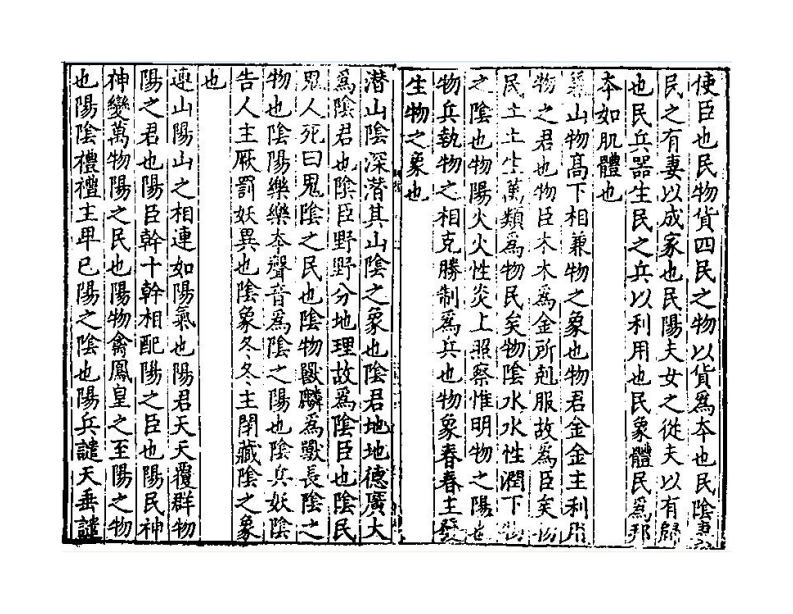 使臣也民物貨四民之物以貨為本也民陰妻
民之有妻以成家也民陽夫女之從夫以有歸
也民兵器生民之兵以利用也民象體民為邦
本如肌體也
兼山物高下相兼物之象也物君金金主利用
物之君也物臣木木為金所剋服故為臣矣物
民土土生萬類為物民矣物陰水水性潤下物
之陰也物陽火火性炎上照察惟明物之陽也
物兵執物之相克勝制為兵也物象春春主發
生物之象也
潛山陰深潛其山陰之象也陰君地地德廣大
為陰君也陰臣野野分地理故為陰臣也陰民
鬼人死曰鬼陰之民也陰物獸麟為獸長陰之
物也陰陽樂樂本聲音為陰之陽也陰兵妖陰
告人主厥罰妖異也陰象冬冬主閉藏陰之象
也
連山陽山之相連如陽氣也陽君天天覆群物
陽之君也陽臣幹十幹相配陽之臣也陽民神
神變萬物陽之民也陽物禽鳳皇之至陽之物
也陽陰禮禮主卑已陽之陰也陽兵譴天垂譴